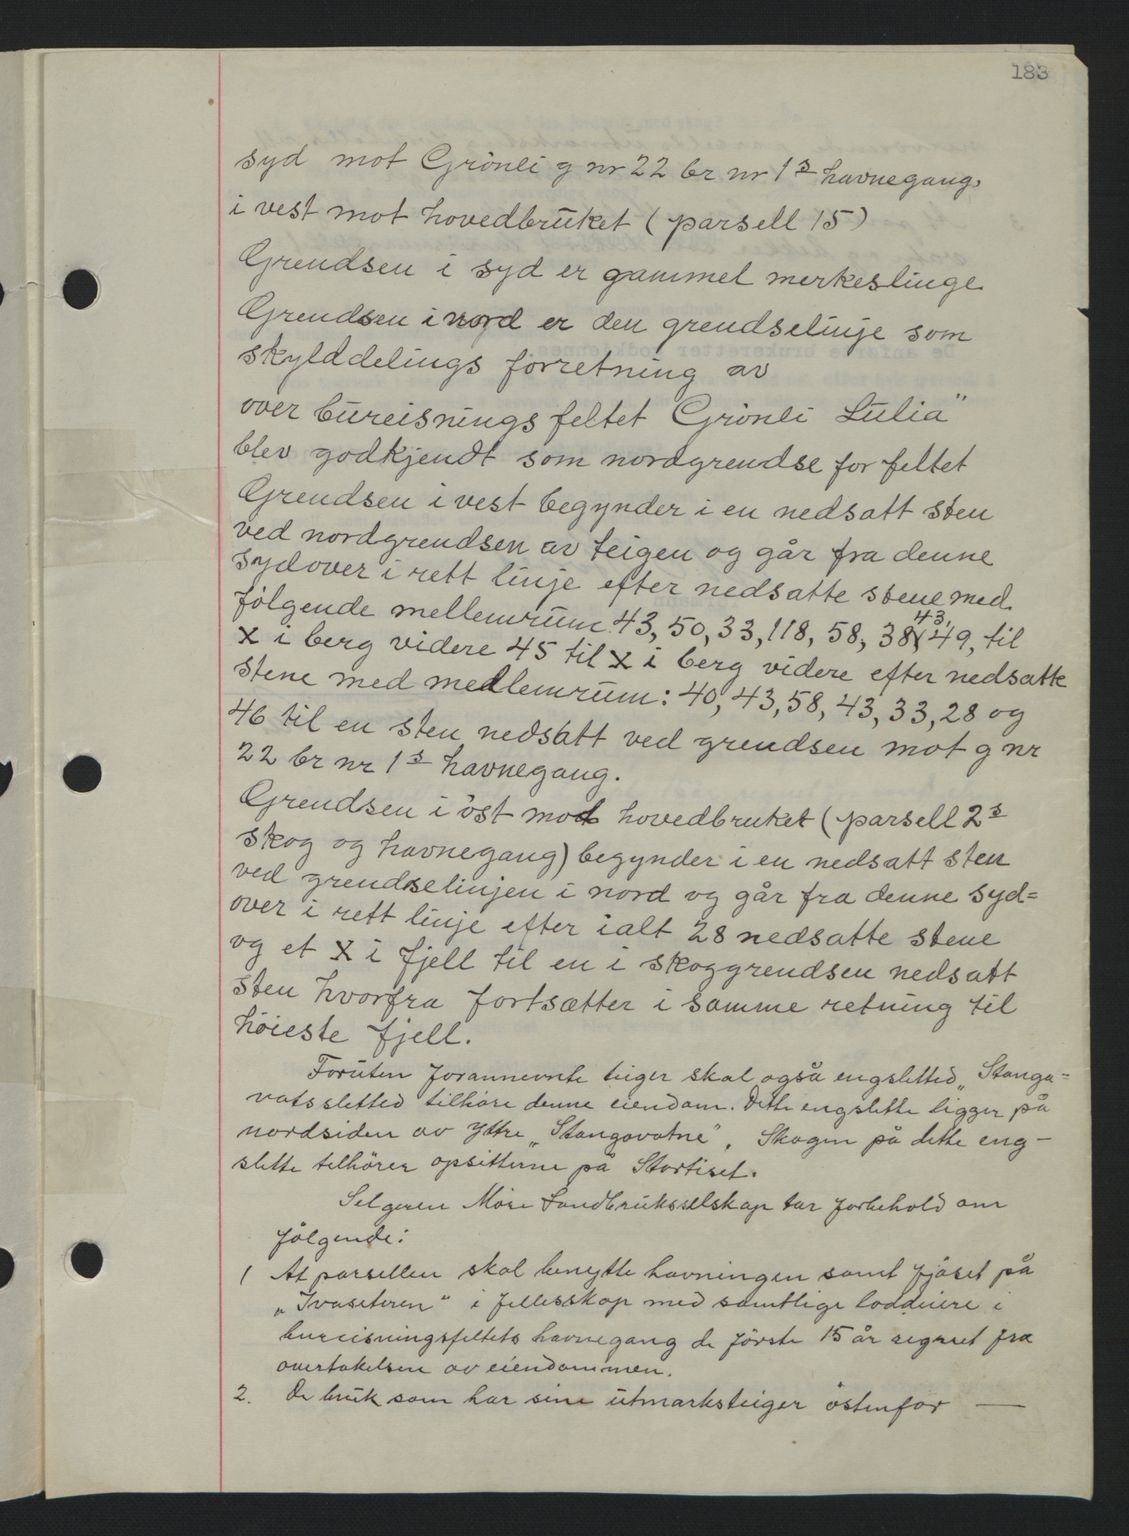 183
syd mot Grönli g nr 22 br nr 1 s havnegang,
i vest mot hovedbruket (parsell 15)
Grendsen i syd er gammel merkeslinge
Grendsen i nord er den grendselinje som
skylddelings forretning av
over bureisnings feltet Grönli Lulia"
blev godkjendt som nordgrendse for feltet
Grendsen i vest begynder i en nedsatt sten
ved nordgrendsen av teigen og går fra denne
sydover i rett linje efter nedsatte stene med
følgende mellemrum 43, 50, 33, 118, 58, 38, 43, 49, til
x i berg videre 45 til x i berg videre efter nedsatte
stene med medlemrum: 40, 43, 58, 43, 33, 28 og
46 til en sten nedsatt ved grendsen mot g nr
22 br nr 1 s havnegang.
Grendsen i öst mod hovedbruket (parsell 2 s
skog og havnegang) begynder i en nedsatt sten
ved grendselinjen i nord og går fra denne syd=
over i rett linje efter ialt 28 nedsatte stene
og et X i fjell til en i skoggrendsen nedsatt
sten hvorfra fortsætter i samme retning til
höieste fjell.
Foruten forannevnte teiger skal også engsletted „Stanga=
vatssletted tilhöre denne eiendom. Dette engslette ligger på
nordsiden av Ytre „Stangavatne". Skogen på dette eng-
slette tilhörer opsitterne på Stortiset.
Selgeren Möre Landbruksselskap tar forbehold om
fölgende:
1 At parsellen skal benytte havningen samt fjöset på
„Ivaseteren" i fellesskap med samtlige loddeiere i
bureisningsfeltets havnegang de förste 15 år regnet fra
overtakelsen av eiendommen.
2. De bruk som har sine utmarksteiger östenfor —